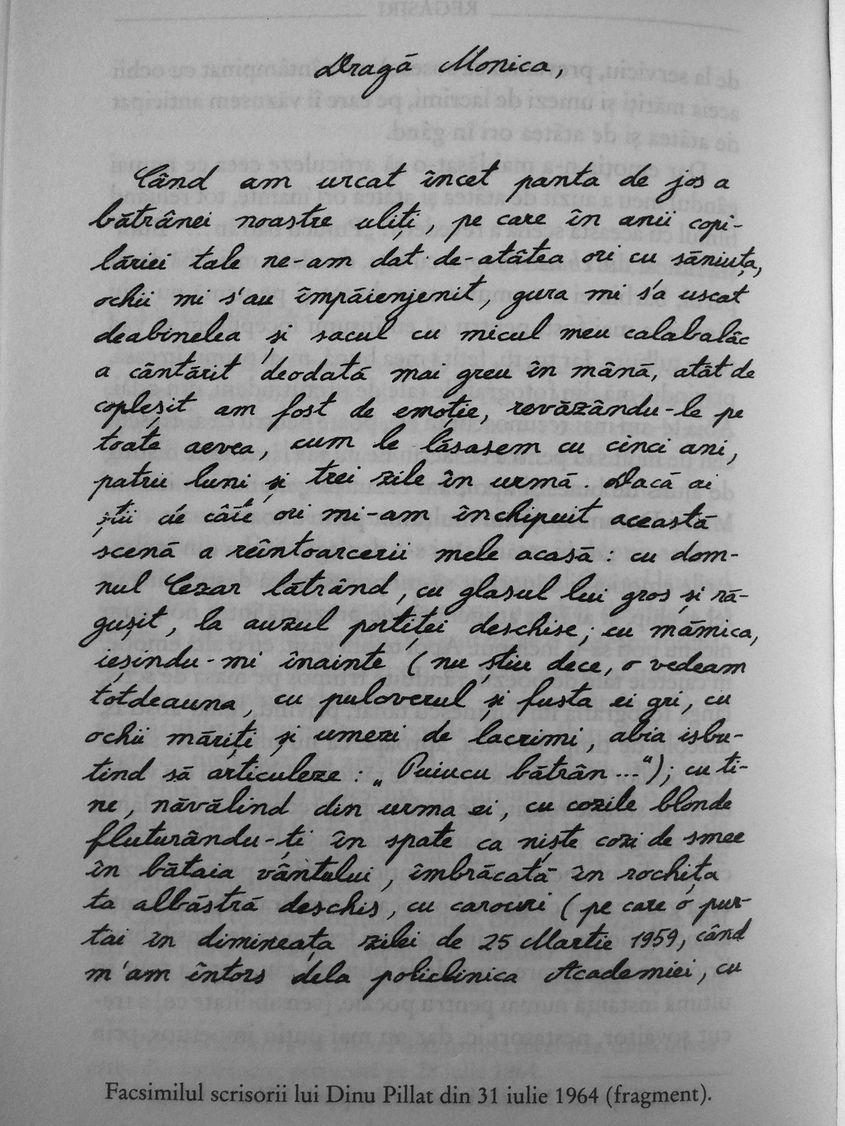 REGĂSIRI
Dragă Monica,
Când am urcat încet panta de jos a
bătrânei noastre uliți, pe care în anii copi-
lăriei tale ne-am dat de-atâtea ori cu săniuța,
ochii mi s'au împăienjenit, gura mi s'a uscat
deabinelea și sacul cu micul meu calabalâc
a cântărit deodată mai greu în mână, atât de
copleșit am fost de emoție, revăzându-le pe
toate aevea, cum le lăsasem cu cinci ani,
patru luni și trei zile în urmă. Dacă ai
ști de câte ori mi-am închipuit această
scenă a reîntoarcerii mele acasă: cu dom-
nul Cezar lătrând, cu glasul lui gros și ră-
gușit, la auzul portiței deschise; cu mămica,
ieșindu-mi înainte (nu știu dece, o vedeam
totdeauna, cu puloverul și fusta ei gri, cu
ochii măriți și umezi de lacrimi, abia isbu-
tind să articuleze: „Puiucu bătrân..."); cu ti-
ne, năvălind din urma ei, cu cozile blonde
fluturându-ți în spate ca niște cozi de smee
în bătaia vântului, îmbrăcată în rochița
ta albăstră deschis, cu carouri (pe care o pur-
tai în dimineața zilei de 25 Martie 1959, când
m'am întors dela policlinica Academiei, cu
Facsimilul scrisorii lui Dinu Pillat din 31 iulie 1964 (fragment).